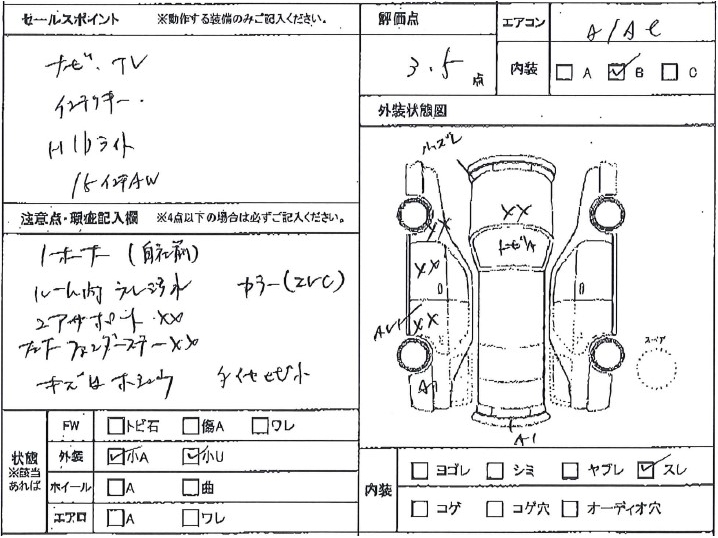 セールスポイント ※動作する装備のみご記入ください。
ナビ・TV
インテリキー・
HIDライト
15インチAW
注意点・瑕疵記入欄 ※4点以下の場合は必ずご記入ください。
1オーナー (自社前)
ルーム内 スレ汚れ カラー(ZVC)
コアサポート XX
フロントフェンダーステーXX
キズ凹
状態 ※該当あれば
FW □トビ石 □傷A □ワレ
外装 ☑小A ☑小U
ホイール □A □曲
エアロ □A □ワレ
評価点 3.5点
エアコン A/AC
内装 □A ☑B □C
外装状態図
XX
XX
XX
XX
A1
A1
スペア
内装 □ヨゴレ □シミ □ヤブレ ☑スレ
□コゲ □コゲ穴 □オーディオ穴